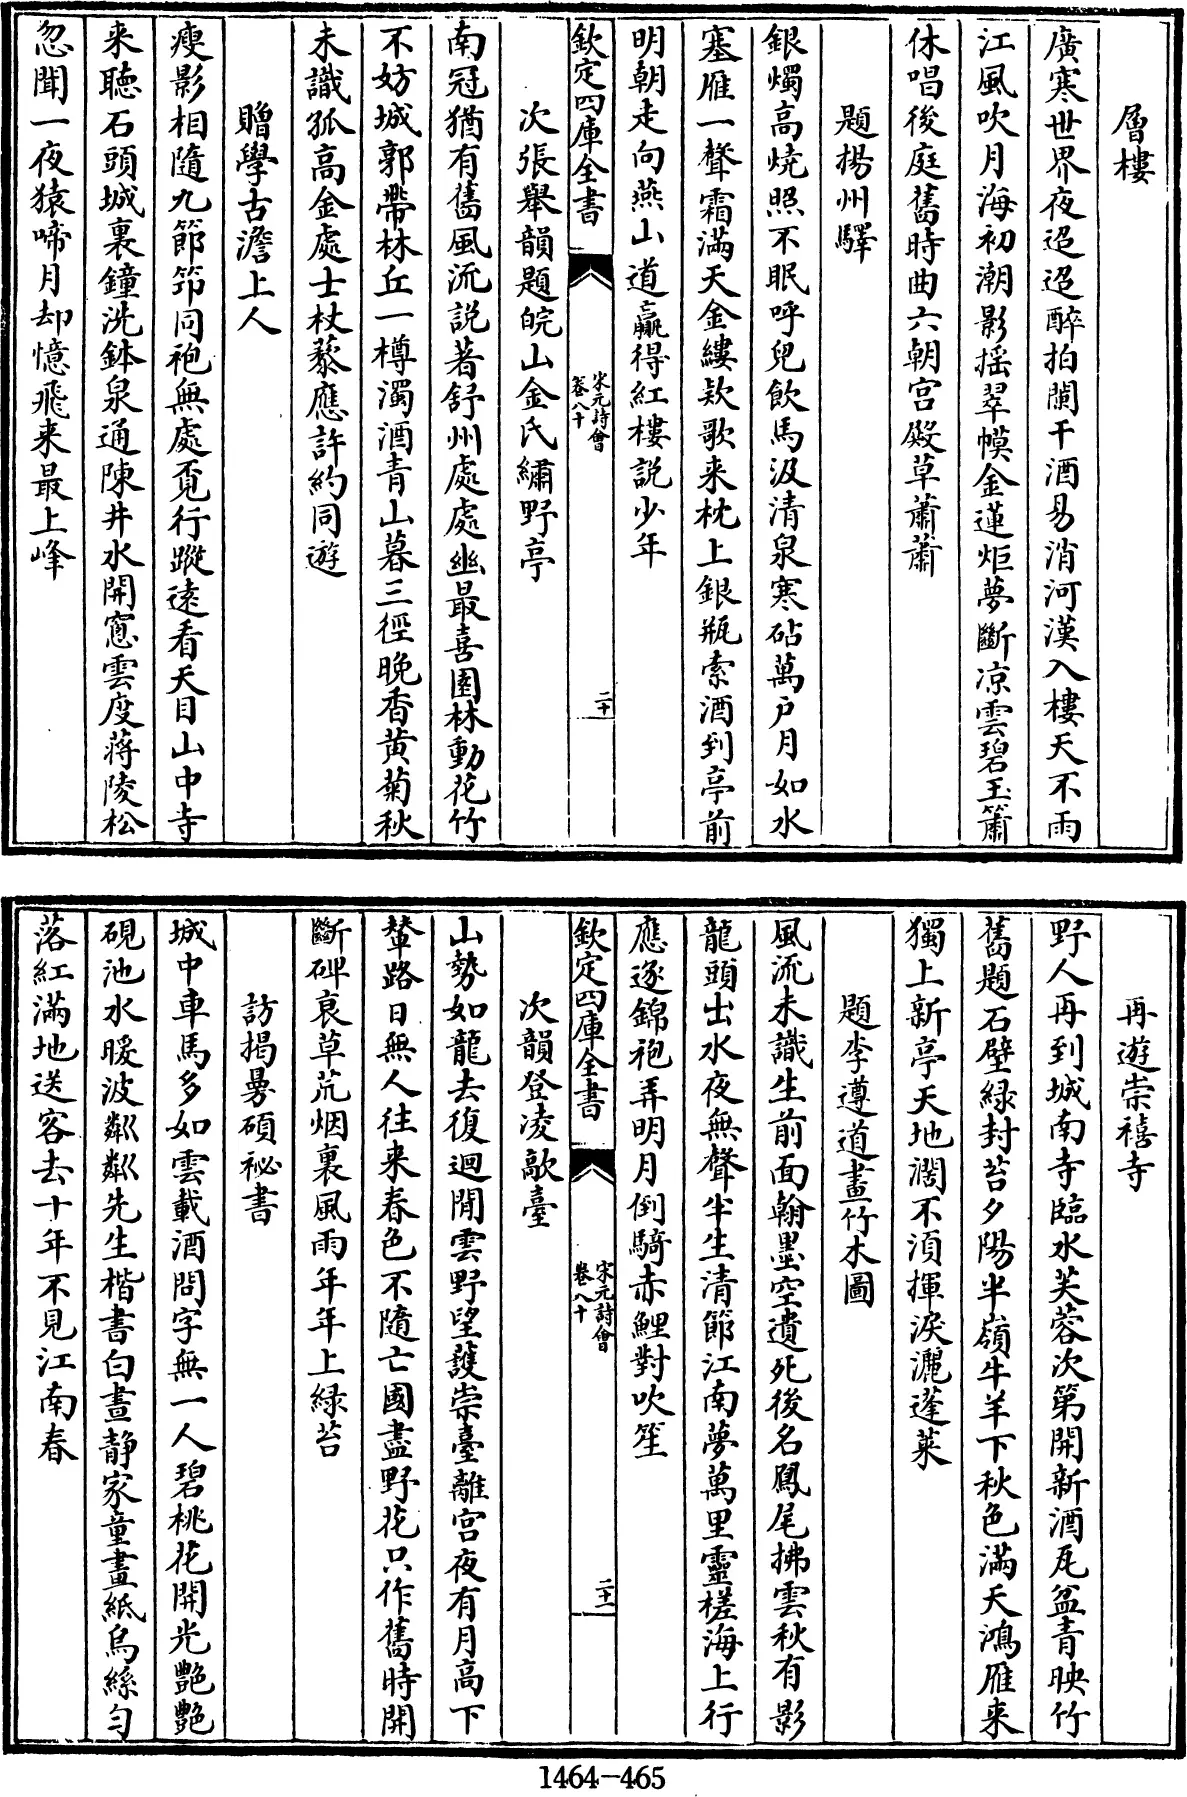 層樓
廣寒世界夜迢迢醉拍闌干酒易消河漢入樓天不雨
江風吹月海初潮影揺翠幙金蓮炬夢斷凉雲碧玉簫
休唱後庭舊時曲六朝宫殿草蕭蕭
題揚州驛
銀燭高焼照不眠呼兒飲馬汲清泉寒砧萬户月如水
塞雁一聲霜滿天金縷欵歌来枕上銀瓶索酒到亭前
明朝走向燕山道贏得紅樓説少年
欽定四庫全書
宋元詩會
卷八十
二十
次張舉韻題皖山金氏繡野亭
南冠猶有舊風流説著舒州處處幽最喜園林動花竹
不妨城郭帶林丘一樽濁酒青山暮三徑晩香黄菊秋
未識孤高金處士杖藜應許約同遊
贈學古澹上人
瘦影相隨九節笻同袍無處覔行蹤遠看天目山中寺
来聴石頭城裏鐘洗鉢泉通陳井水開窻雲度蔣陵松
忽聞一夜猿啼月却憶飛来最上峰
再遊崇禧寺
野人再到城南寺臨水芙蓉次第開新酒瓦盆青映竹
舊題石壁緑封苔夕陽半嶺牛羊下秋色滿天鴻雁来
獨上新亭天地濶不湏揮淚灑蓬莱
題李遵道畫竹木圖
風流未識生前面翰墨空遺死後名鳳尾拂雲秋有影
龍頭出水夜無聲半生清節江南夢萬里靈槎海上行
應逐錦袍弄明月倒騎赤鯉對吹笙
欽定四庫全書
宋元詩會
卷八十
二十一
次韻登凌歊臺
山勢如龍去復迴閒雲野望護崇臺離宫夜有月高下
輦路日無人往来春色不隨亡國盡野花只作舊時開
斷碑衰草荒烟裏風雨年年上緑苔
訪揭曼碩祕書
城中車馬多如雲載酒問字無一人碧桃花開光艷艷
硯池水暖波粼粼先生楷書白晝静家童畫紙烏絲匀
落紅滿地送客去十年不見江南春
1464-465